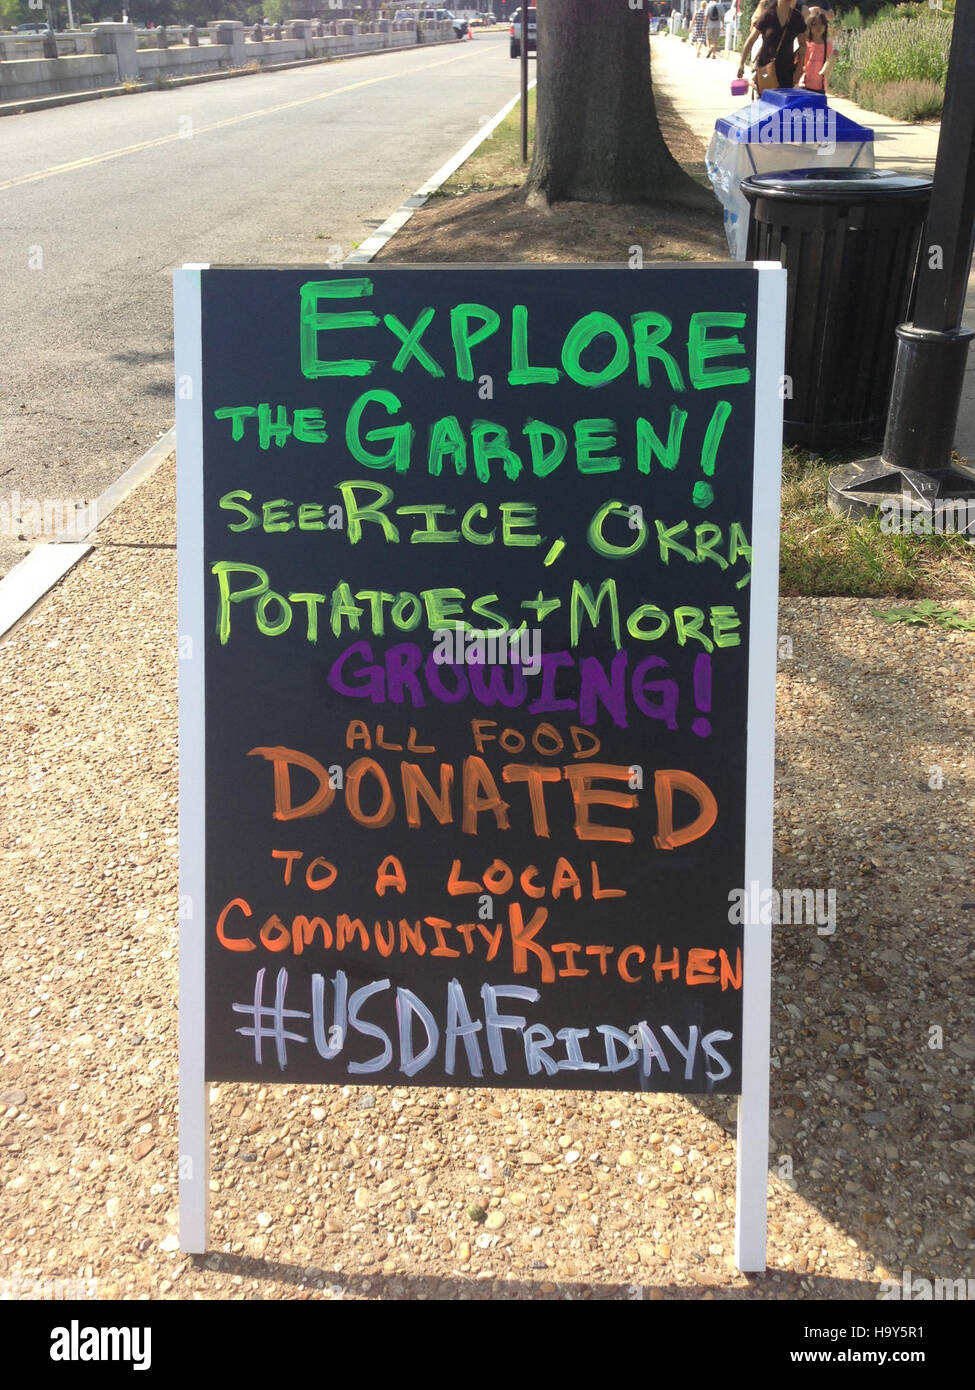 EXPLORE
THE GARDEN!
SEE RICE, OKRA,
POTATOES, + MORE
GROWING!
ALL FOOD
DONATED
TO A LOCAL
COMMUNITY KITCHEN
#USDAFRIDAYS
alamy
alamy
Image ID: H9Y5R1
www.alamy.com